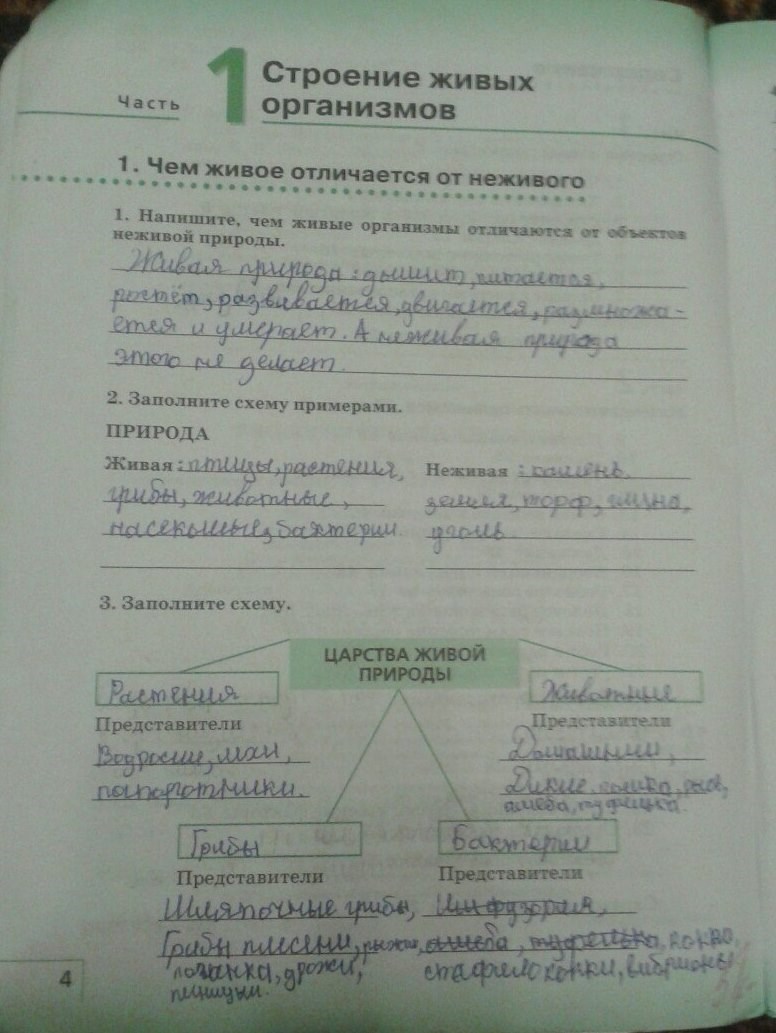 Часть
1
Строение живых
организмов
1. Чем живое отличается от неживого
1. Напишите, чем живые организмы отличаются от объектов
неживой природы.
Живая природа: дышит, питается,
ростёт, развивается, двигается, размножа-
ется и умерает. А неживая природа
этого не делает.
2. Заполните схему примерами.
ПРИРОДА
Живая: птицы, растения,
грибы, животные,
насекомые, бактерии.
Неживая: камень,
земля, торф, глина,
уголь
3. Заполните схему.
ЦАРСТВА ЖИВОЙ
ПРИРОДЫ
Растения
Представители
Водросли, мхи,
папоротники.
Животные
Представители
Домашнии,
Дикие. кошка, рысь,
амеба, туфелька.
Грибы
Представители
Шляпочные грибы,
Грибы плесени, рыжик,
поганка, дрожи,
пеницыл.
Бактерии
Представители
Инфузория,
амеба, туфелька, кокко,
стафелококки, вибрионы
4